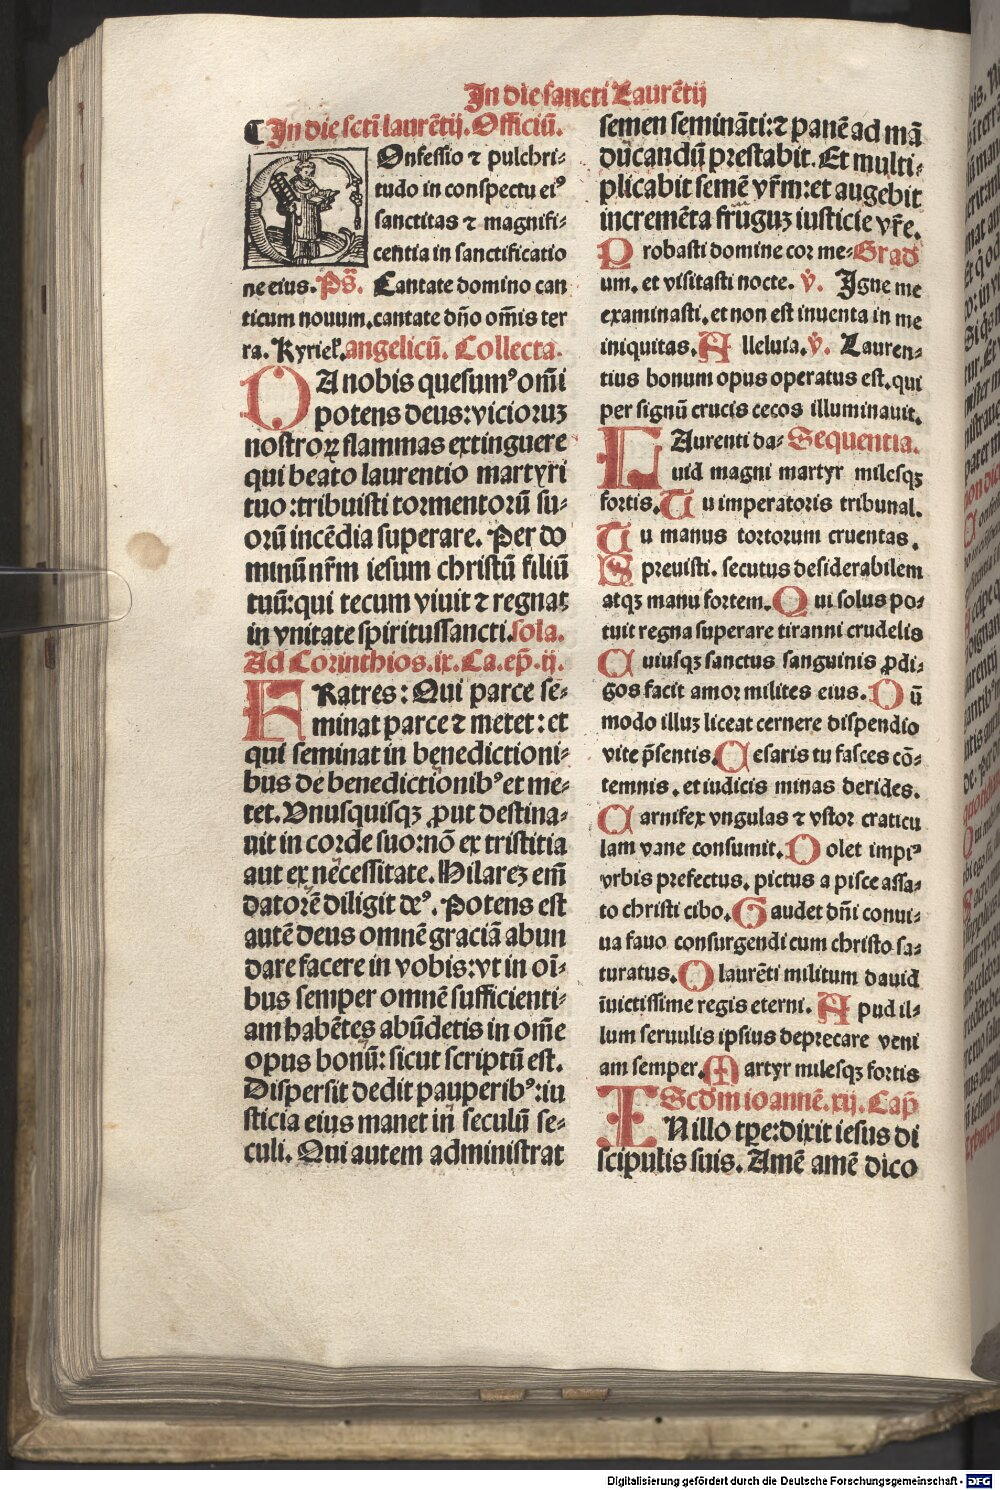 In die sancti Laurētij
¶ In die scti laurētij. Officiū.
COnfessio ⁊ pulchri-
tudo in conspectu eiꝰ
sanctitas ⁊ magnifi-
centia in sanctificatio
ne eius. Ps̄. Cantate domino can
ticum nouum. cantate dn̄o om̄is ter
ra. Kyriel. angelicū. Collecta.
DA nobis quesumꝰ om̄i
potens deus: vicioruꝫ
nostroꝝ flammas extinguere
qui beato laurentio martyri
tuo: tribuisti tormentorū su-
orū incēdia superare. Per do
minū nr̄m iesum christū filiū
tuū: qui tecum viuit ⁊ regnat
in vnitate spiritussancti. sola.
Ad Corinthios. ix. Ca. ep̄. ij.
FRatres: Qui parce se-
minat parce ⁊ metet: et
qui seminat in benedictioni-
bus de benedictionibꝰ et me-
tet. Vnusquisqꝫ ꝓut destina-
uit in corde suo: nō ex tristitia
aut ex necessitate. Hilareꝫ em̄
datorē diligit deꝰ. Potens est
autē deus omnē graciā abun
dare facere in vobis: vt in oī-
bus semper omnē sufficienti-
am habētes abūdetis in om̄e
opus bonū: sicut scriptū est.
Dispersit dedit pauperibꝰ: iu
sticia eius manet in seculū se-
culi. Qui autem administrat
semen semināti: ⁊ panē ad mā
ducandū prestabit. Et multi-
plicabit semē vr̄m: et augebit
incremēta fruguꝫ iusticie vr̄e.
Probasti domine cor me- Grad̄
um. et visitasti nocte. v̄. Igne me
examinasti. et non est inuenta in me
iniquitas. Alleluia. v̄. Lauren-
tius bonum opus operatus est. qui
per signū crucis cecos illuminauit.
LAurenti da- Sequentia.
uid magni martyr milesqꝫ
fortis. Tu imperatoris tribunal.
Tu manus tortorum cruentas.
Spreuisti. secutus desiderabilem
atqꝫ manu fortem. Qui solus po-
tuit regna superare tiranni crudelis
Cuiusqꝫ sanctus sanguinis ꝓdi-
gos facit amor milites eius. Dū
modo illuꝫ liceat cernere dispendio
vite p̄sentis. Cesaris tu fasces cō-
temnis. et iudicis minas derides.
Carnifex vngulas ⁊ vstor craticu
lam vane consumit. Dolet impiꝰ
vrbis prefectus. victus a pisce assa-
to christi cibo. Gaudet dn̄i conui-
ua fauo consurgendi cum christo sa-
turatus. O laurēti militum dauid
īuictissime regis eterni. Apud il-
lum seruulis ipsius deprecare veni
am semper. Martyr milesqꝫ fortis
Scdm ioannē. xij. Cap̄
IN illo tp̄e: dixit iesus di
scipulis suis. Amē amē dico
Digitalisierung gefördert durch die Deutsche Forschungsgemeinschaft - DFG